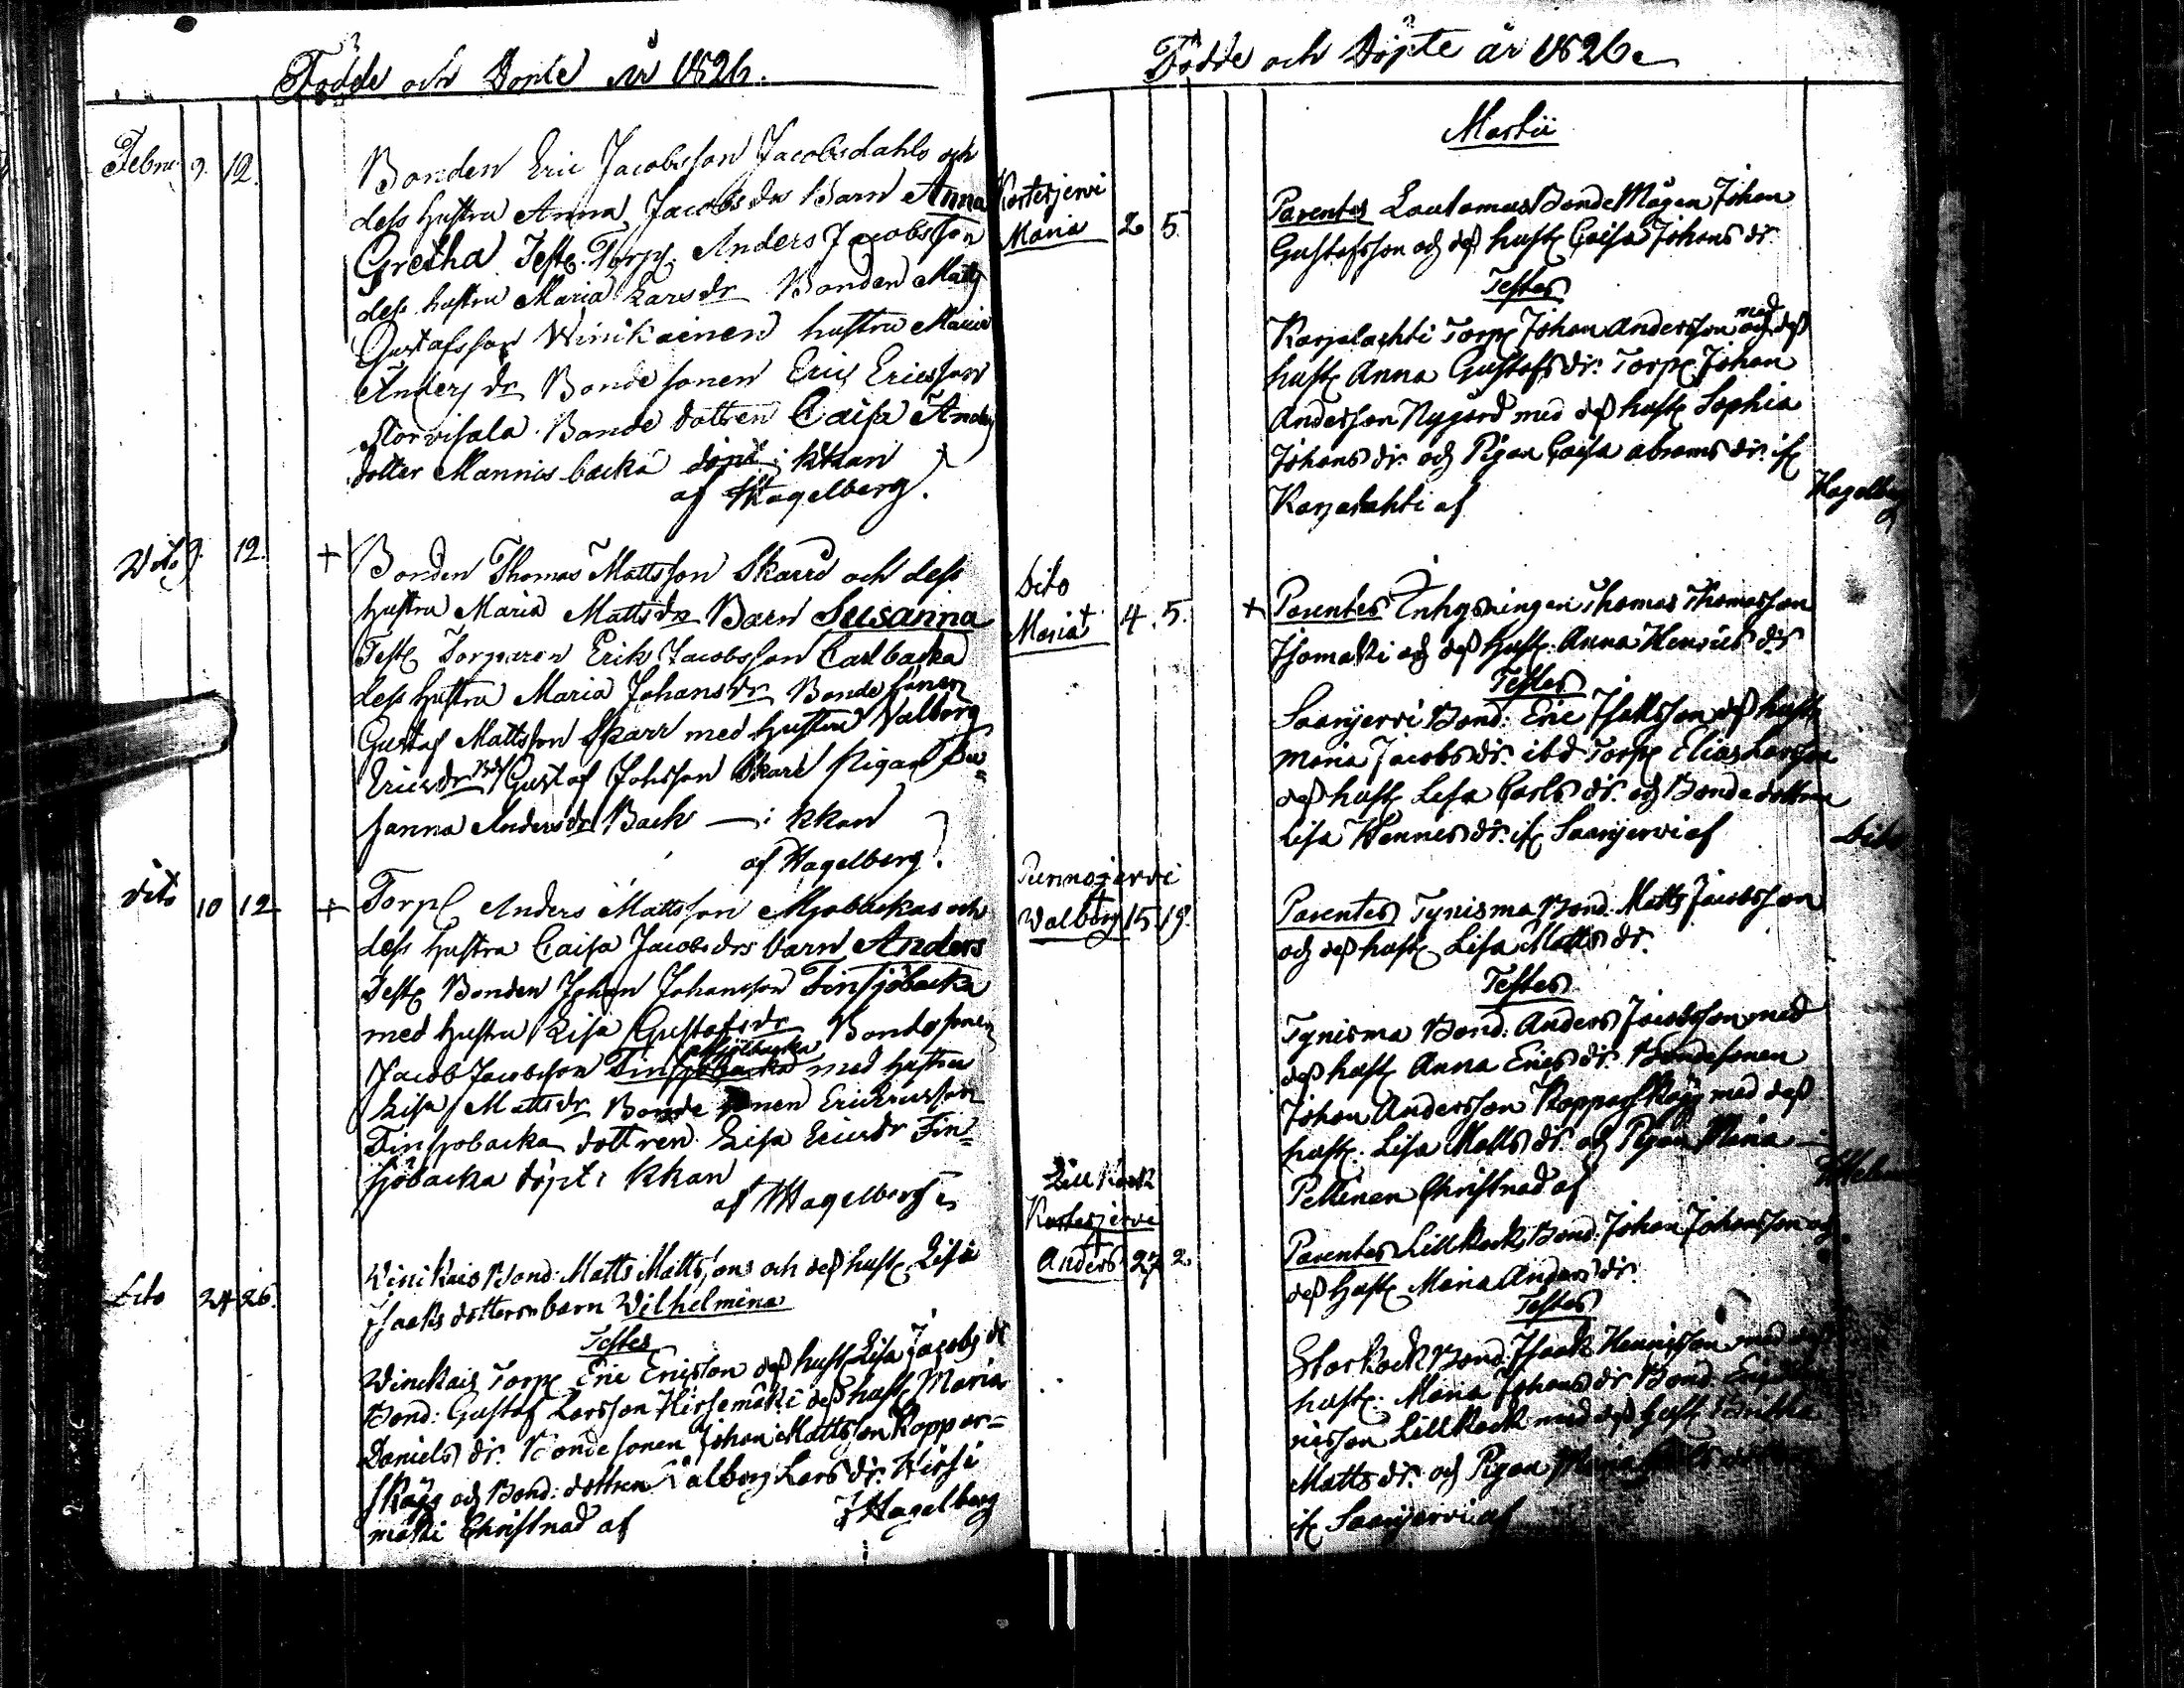 Födde och Döpte år 1826.
Febru 9. 12. Bonden Eric Jacobsson Jacobsdahls och
dess hustru Anna Jacobs dr Barn Anna
Gretha Test. Torp. Anders Jacobsson
dess hustru Maria Lars dr Bonden Matts
Gustafsson Winikainen hustru Maria
Anders dr Bonde sonen Eric Ericsson
Bonde dottren Caisa Anders
dotter Mannisbacka döpt i kkan
af Hagelberg.
dito 9. 12. + Bonden Thomas Mattsson Skarr och dess
hustru Maria Matts dr Barn Susanna
Test. Torparen Erik Jacobsson Carlbacka
dess hustru Maria Johans dr Bonde sonen
Gustaf Mattsson Skarr med hustru Valborg
Erics dr Gustaf Johsson Skarr Pigan Su=
sanna Anders dr Back — i kkan
af Hagelberg.
dito 10 12 + Torp. Anders Mattsson och
dess hustru Caisa Jacobsdrs barn Anders
Test. Bonden Johan Johansson Finsjöbacka
med hustru Lisa Gustafs dr Bondesonen
Jacob Jacobsson Finsjöbacka med hustru
Lisa Matts dr Bonde sonen Eric Ericsson
Finsjöbacka dottren Lisa Erics dr Fin=
sjöbacka döpt i kkan
af Hagelberg
dito 24 26. Winikais Bond: Matts Mattsons och dess hust. Lisa
Isacks dotters barn Wilhelmina
Testes
Winikais Torp. Eric Ericsson dess hust. Lisa Jacobs dr
Bond: Gustaf Larsson Hirsemäki dess hust. Maria
Daniels dr. Bondesonen Johan Mattsson Koppar=
skägg och Bond: dottren Valborg Lars dr. Hirsi
mäki Christnad af J Hagelberg
Födde och Döpte år 1826.
Martii
Kortesjervi
Maria 2 5. Parentes Lautamus Bonde Mågen Johan
Gustafsson och dess hust. Caisa Johans dr.
Testes
Karjalachti Torp. Johan Andersson med dess
hust. Anna Gustafs dr. Torp. Johan
Andersson Nygård med dess hust. Sophia
Johans dr. och Pigan Caisa Abrams dr. if.
Karjalahti af Hagelberg
Dito
Maria + 4. 5. + Parentes Inhysningen Thomas Thomasson
och dess hust. Anna Henrics dr.
Testes
Saarijervi Bond: Eric Isaksson dess hust.
Maria Jacobs dr. ibd Torp. Elias Larsson
dess hust. Lisa Carls dr. och Bonde dottren
Lisa Hennes dr. if. Saarijervi af Dito
Purmojärvi
Walborg 15 19. Parentes Tynisma Bond. Matts Jacobsson
och dess hust. Lisa Matts dr.
Testes
Tynisma Bond: Anders Jacobsson med
dess hust. Anna Erics dr. Bondesonen
Johan Andersson Kopparskägg med dess
hust. Lisa Matts dr. och Pigan Maria
Pelkinen Christnad af
Lill Kock
Kortesjervi
Anders 27 2. Parentes Lillkock Bond. Johan Johansson och
dess Hust. Maria Anders dr.
Testes
Storkock Bond. Isaak Henrisson med dess
hust. Maria Johans dr. Bond.
Lillkock med dess hust. Britha
Matts dr. och Pigan Maria
if. Saarijervi af